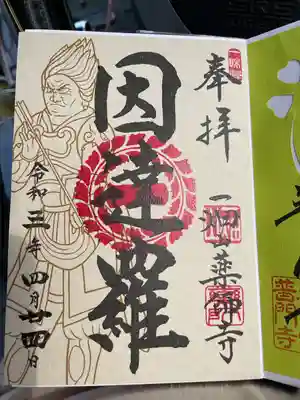 奉拝
因達羅
一畑山薬師寺
令和三年四月廿四日
普門寺